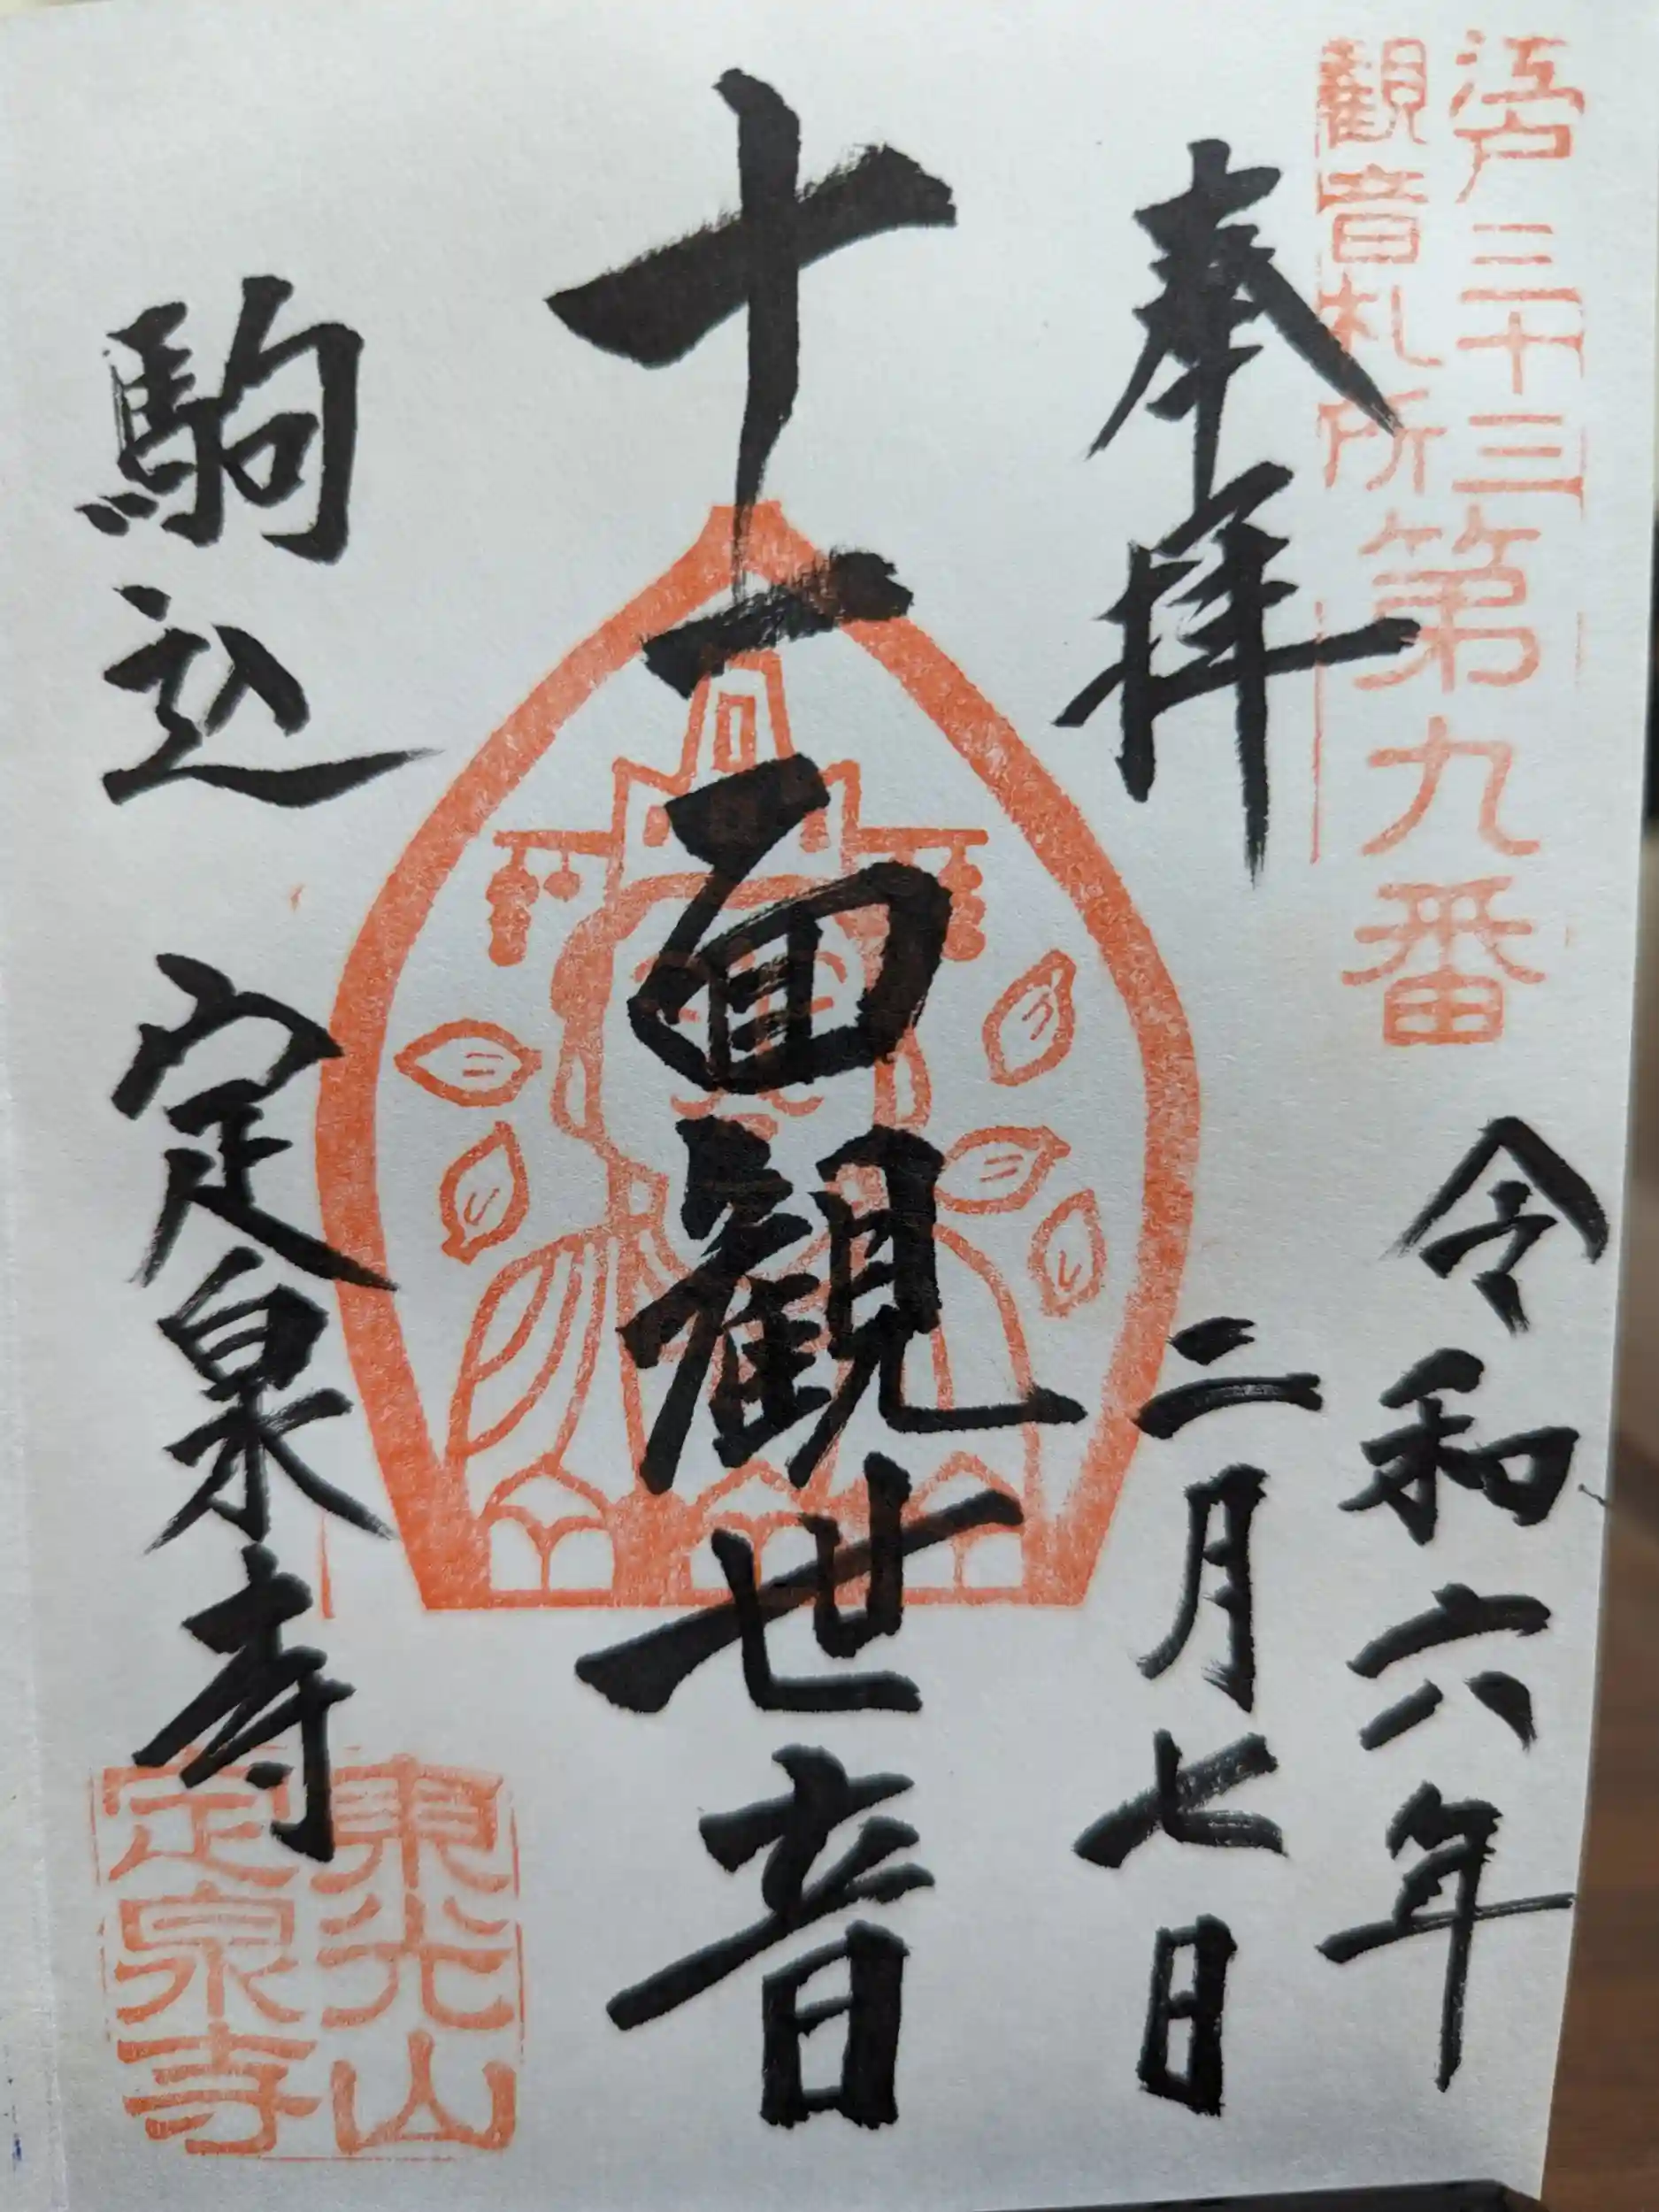 江戸三十三
観音札所
第九番
奉拝
令和六年
二月七日
十一面観世音
駒込 定泉寺
東光山
定泉寺